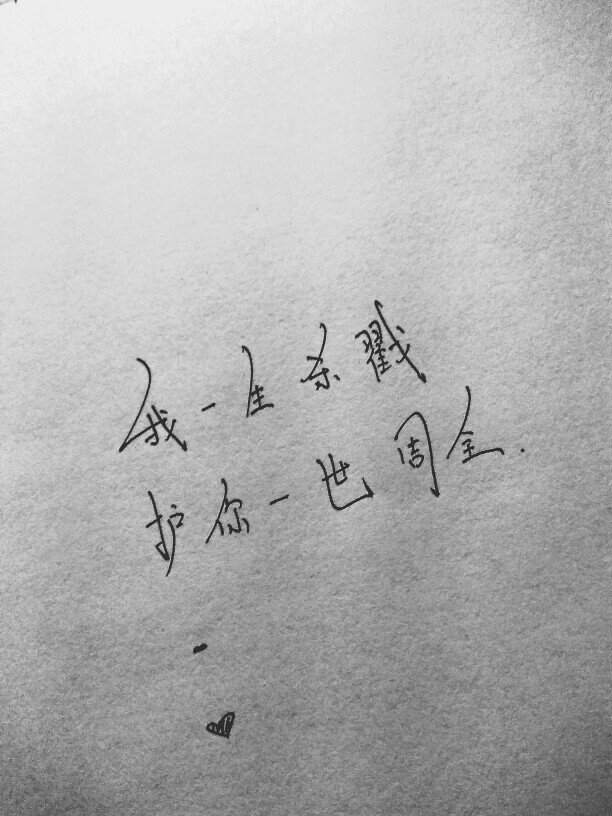 我一生杀戮
护你一世周全.